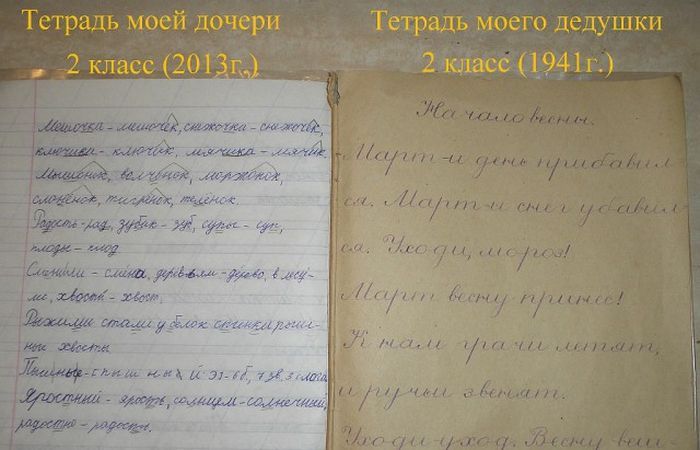 Тетрадь моей дочери
2 класс (2013г.)
Мешочка - мешочек, снежочка - снежочек,
ключика - ключик, мячика - мячик.
Мышонок, волчонок, моржонок,
слонёнок, тигрёнок, телёнок.
Радость - рад, зубик - зуб, супы - суп,
плоды - плод.
- слёна, деревьям - дерево, в лесу -
хвост.
Рыжими стали у белок спинки пыш-
ные хвосты
Пышные - п ы ш н ы й
Яростный - ярость, солнцем - солнечный,
радостно - радость.
Тетрадь моего дедушки
2 класс (1941г.)
Начало весны.
Март - и день прибавил-
ся. Март - и снег убавил-
ся. Уходи, мороз!
Март весну принес!
К нам грачи летят,
и ручьи звенят.
Уходи - уход. Весну вет-